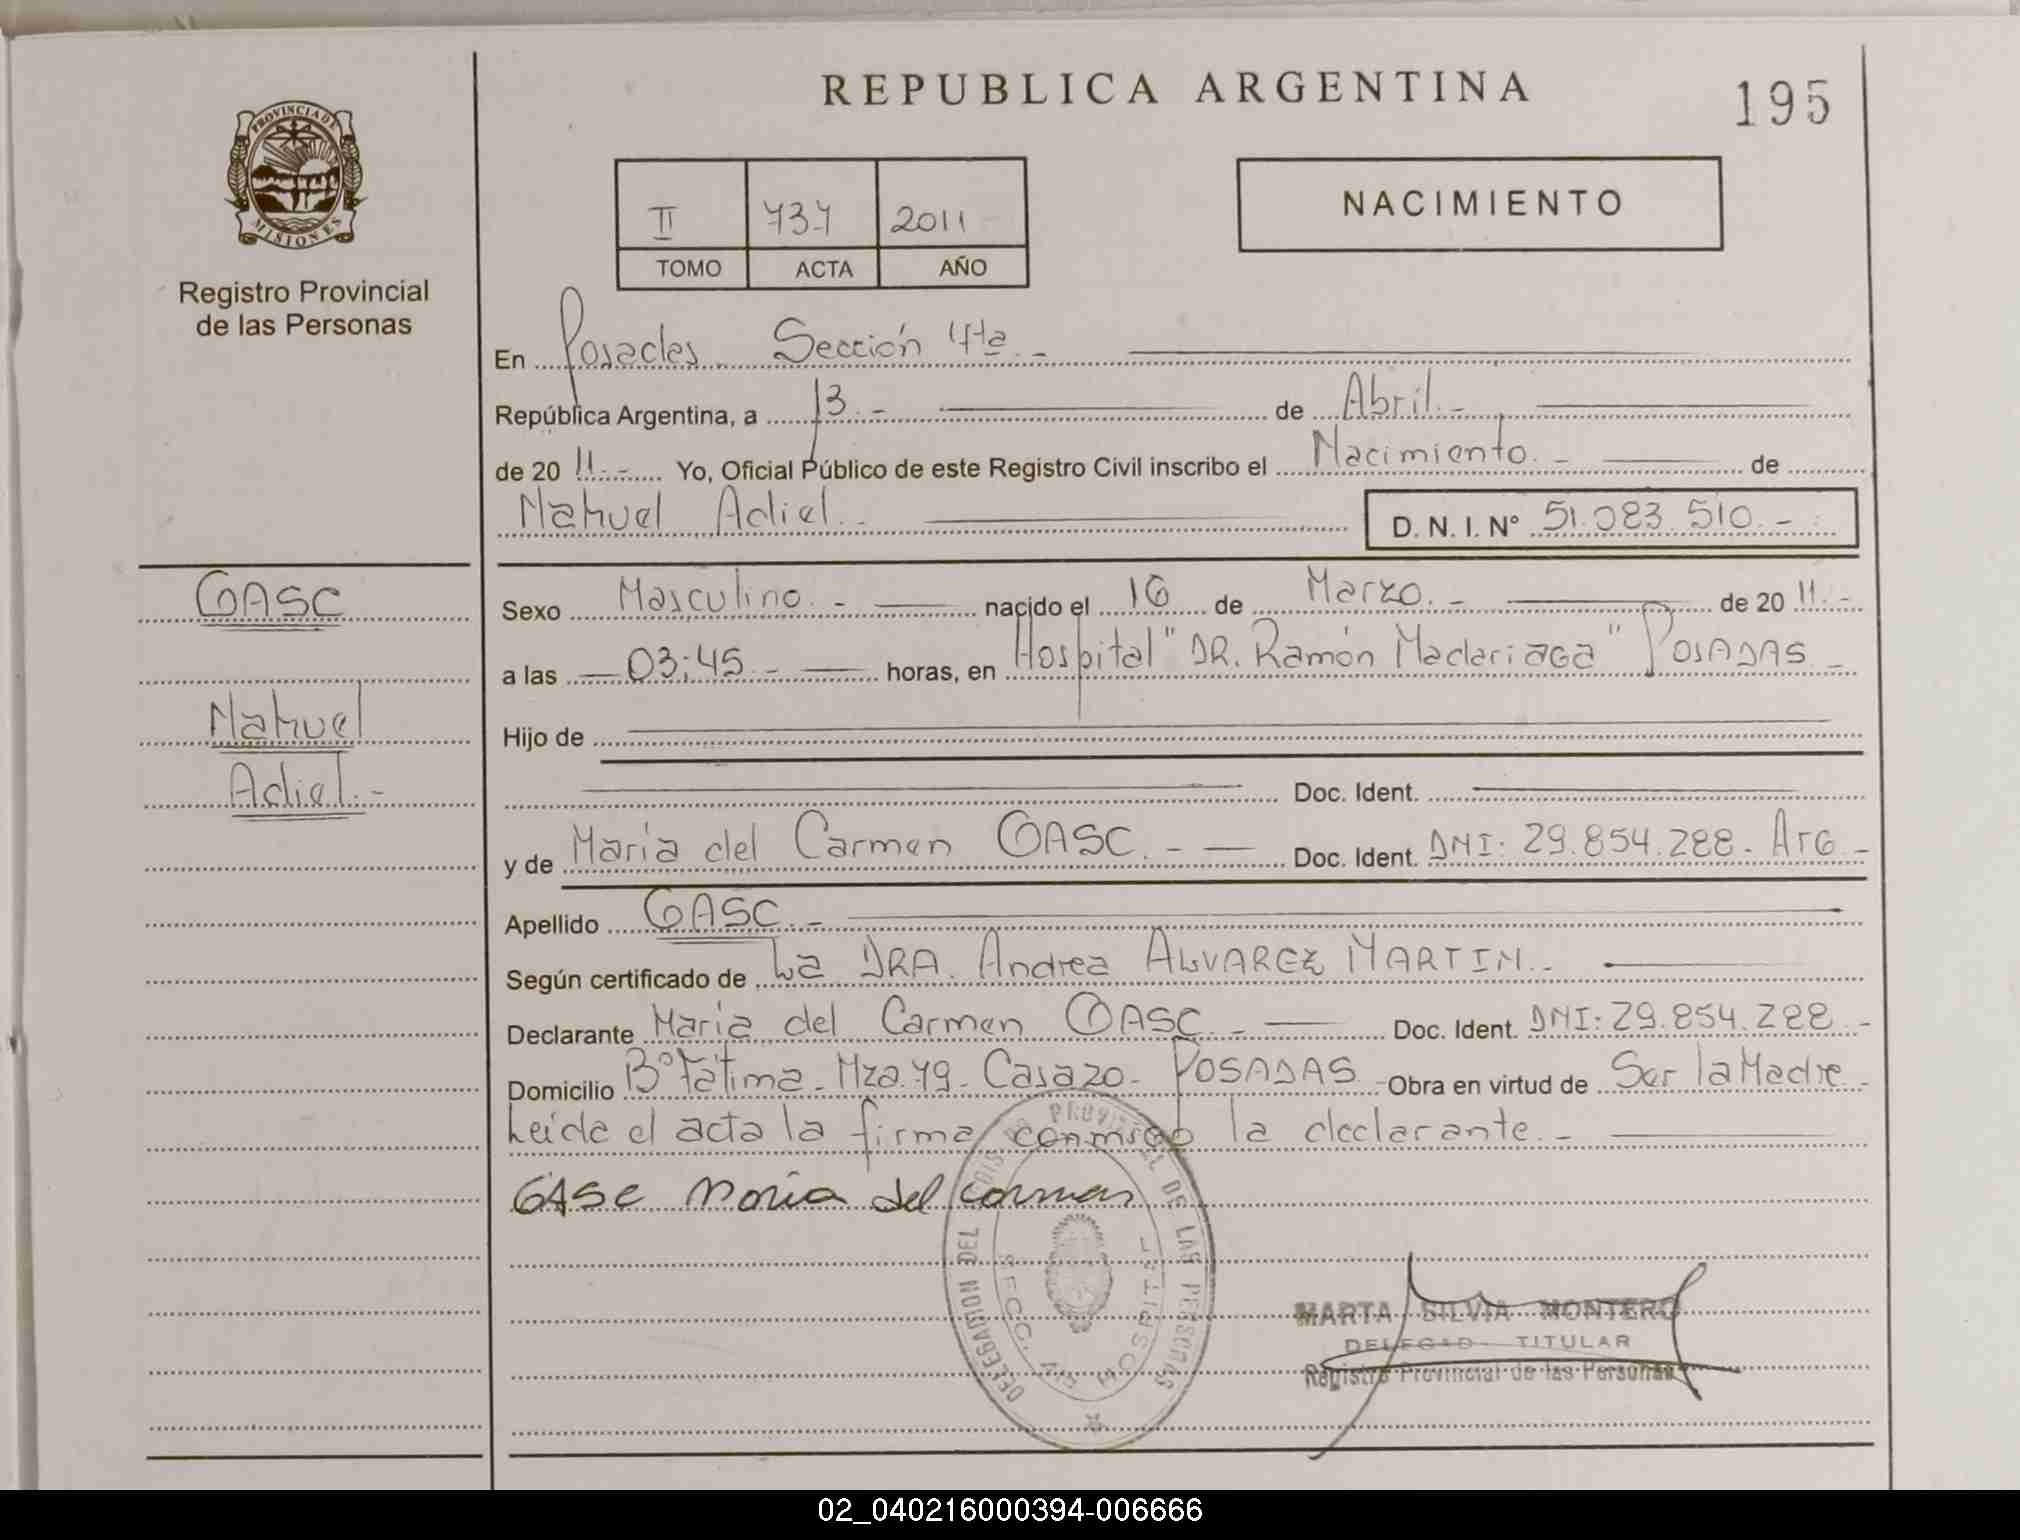 REPUBLICA ARGENTINA
195
PROVINCIA DE
MISIONES
Registro Provincial
de las Personas
II 737 2011
TOMO ACTA AÑO
NACIMIENTO
En Posadas Sección 4ta.-
República Argentina, a 13.- de Abril.-
de 2011.- Yo, Oficial Público de este Registro Civil inscribo el Nacimiento.- de
Nahuel Adiel.- D. N. I. N° 51.083.510.-
GASC
Nahuel
Adiel.-
Sexo Masculino.- nacido el 16 de Marzo.- de 2011.-
a las 03:45.- horas, en Hospital "DR. Ramón Madariaga" POSADAS.-
Hijo de
Doc. Ident.
y de María del Carmen GASC.- Doc. Ident. DNI: 29.854.288. Arg.-
Apellido GASC.-
Según certificado de La DRA. Andrea ALVAREZ MARTIN.-
Declarante María del Carmen GASC.- Doc. Ident. DNI: 29.854.288.-
Domicilio B° Fátima - Mza. 79 - Casa 20 - POSADAS.- Obra en virtud de Ser la Madre.-
Leída el acta la firma conmigo la declarante.-
GASC Maria del Carmen
DELEGACION DEL REGIS. PROVINCIAL DE LAS PERSONAS
SECC. 4ta HOSPITAL
MARTA SILVIA MONTERO
DELEGAD TITULAR
Registro Provincial de las Personas
02_040216000394-006666